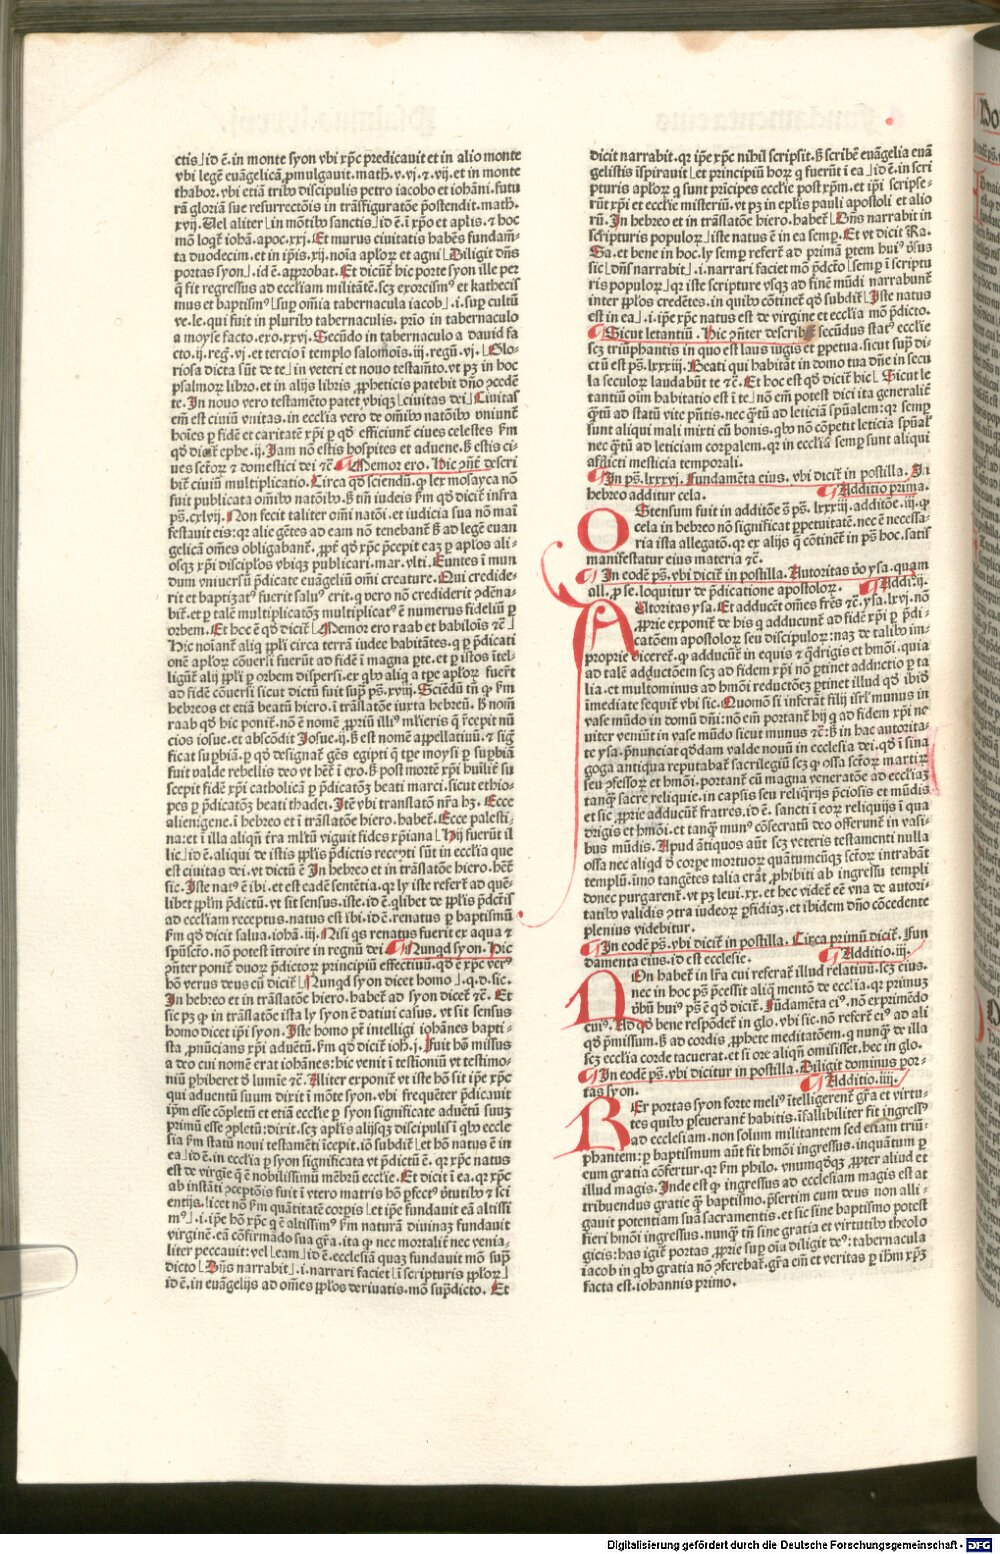 ctis⌋ id ē. in monte syon vbi xp̄c predicauit et in alio monte
vbi legē euāgelicā ꝓmulgauit. math. v. vj. ⁊ vij. et in monte
thabor. vbi etiā tribꝰ discipulis petro iacobo et iohāni. futu
rā gloriā sue resurrectōis in trāsfiguratōe p̄ostendit. math.
xvij. Uel aliter⌊in mōtibꝰ sanctis⌋ id ē. ī xp̄o et aplis. ⁊ hoc
mō loqͭ iohā. apoc. xxj. Et murus ciuitatis habēs fundam̄
ta duodecim. et in ip̄is. xij. noīa apl'oꝝ et agni⌊Diligit dn̄s
portas syon⌋. id ē. approbat. Et dicūt hic porte syon ille per
q̄ fit regressus ad eccliam militātē. scꝫ exorcismꝰ et kathecis
mus et baptismꝰ⌊sup om̄ia tabernacula iacob⌋. i. sup cultū
ve. le. qui fuit in pluribꝰ tabernaculis. prīo in tabernaculo
a moyse facto. exo. xxvj. Secūdo in tabernaculo a dauid fa
cto. ij. reg. vj. et tercio ī templo salomōis. iij. regū. vj.⌊Glo-
riosa dicta sūt de te⌋ in veteri et nouo testam̄to. vt pꝫ in hoc
psalmoꝝ libro. et in alijs libris ꝓpheticis patebit dn̄o ꝯcedē
te. In nouo vero testamēto patet vbiqꝫ⌊ciuitas dei⌋ Ciuitas
em̄ est ciuiū vnitas. in ecclīa vero de om̄ibꝰ natōibꝰ vniunt
hoīes p fidē et caritatē xp̄i p qd̄ efficiunt ciues celestes fm
qd̄ dicit ephe. ij. Jam nō estis hospites et aduene. sꝫ estis ci-
ues sctōꝝ ⁊ domestici dei ⁊c̄ ¶ Memor ero. Hic ꝯn̄t descri
bit̄ ciuiū multiplicatio. Circa qd̄ sciendū. ꝙ lex mosayca nō
fuit publicata om̄ibꝰ natōibꝰ. sꝫ tm̄ iudeis fm qd̄ dicit̄ infra
ps̄. cxlvij. Non fecit taliter om̄i natōi. et iudicia sua nō mai
festauit eis: qꝛ alie gētes ad eam nō tenebant̄ sꝫ ad legē euan
gelicā om̄es obligabant̄. ꝓpt̄ qd̄ xp̄c p̄cepit eaꝫ p aplos ali-
osqꝫ xp̄i disciplos vbiqꝫ publicari. mar. vlti. Euntes ī mun
dum vniuersū p̄dicate euāgeliū om̄i creature. Qui credide-
rit et baptizatꝰ fuerit saluꝰ erit. q̄ vero nō crediderit ꝯdēna-
bit̄. et p talē multiplicatōꝫ multiplicatꝰ ē numerus fideliū p
orbem. Et hoc ē qd̄ dicit̄⌊Memor ero raab et babilōis ⁊c̄⌋
Hic noīant̄ aliq̄ pp̄li circa terrā iudee habitātes. q̄ p p̄dicati
onē apl'oꝝ cōuersi fuerūt ad fidē ī magna p̄te. et p istos ītel-
ligūt̄ alij pp̄li p orbem dispersi. ex qꝰ aliq̄ a tp̄e apl'oꝝ fuert̄
ad fidē cōuersi sicut dictū fuit sup ps̄. xviij. Sciēdū tn̄ ꝙ fm
hebreos et etiā beatū hiero. ī trāslatōe iuxta hebreū. sꝫ nom̄
raab qd̄ hic ponit̄. nō ē nomē ꝓpriū illiꝰ ml̄ieris q̄ recepit nū
cios iosue. et abscōdit Josue. ij. sꝫ est nomē appellatiuū. ⁊ siḡ
ficat supbiā. p qd̄ designat̄ gēs egipti q̄ tp̄e moysi p supbiā
fuit valde rebellis deo vt het̄ ī exo. sꝫ post mortē xp̄i huīlit̄ su
scepit fidē xp̄i catholicā p p̄dicatōꝫ beati marci. sicut ethio-
pes p p̄dicatōꝫ beati thadei. Jtē vbi translatō nr̄a hꝫ. Ecce
alienigene. ī hebreo et ī trāslatōe hiero. habet̄. Ecce palesti-
na: et ī illa aliqn̄ t̄ra mltū viguit fides xp̄iana⌊Hij fuerūt il
lic⌋ id ē. aliqui de istis pp̄lis p̄dictis recepti sūt in ecclīa que
est ciuitas dei. vt dictū ē Jn hebreo et in trāslatōe hiero. het̄
sic. Jste natꝰ ē ibi. et est eadē sentētia. qꝛ ly iste refert̄ ad quē-
libet pplm̄ p̄dictū. vt sit sensus. iste. id ē. q̄libet de pplis p̄dictis
ad eccliam receptus. natus est ibi. id ē. renatus p baptismū
fm qd̄ dicit salua. iohā. iij. Nisi qs renatus fuerit ex aqua ⁊
spūscto. nō potest itroire in regnū dei ¶ Nunqd syon. Hic
ꝯn̄ter ponit̄ duoꝝ p̄dictoꝝ principiū effectiuū. qd̄ ē xp̄c verꝰ
hō verus deus cū dicit̄⌊Nunqd syon dicet homo⌋. q. d. sic.
Jn hebreo et in trāslatōe hiero. habet̄ ad syon dicet̄ ⁊c̄. Et
sic pꝫ ꝙ in trāslatōe ista ly syon ē datiui casus. vt sit sensus
homo dicet ip̄i syon. Jste homo pt̄ intelligi iohānes bapti-
sta p̄nūcians xp̄i aduētū. fm qd̄ dicit ioh. j. Fuit hō missus
a deo cui nomē erat iohānes: hic venit ī testioniū vt testimo-
niū phiberet d̄ lumīe ⁊c̄. Aliter exponit̄ vt iste hō sit ip̄e xp̄c
qui aduentū suum dixit ī mōte syon. vbi frequēter p̄dicauit
ip̄m esse cōpletū et etiā ecclīe p syon significate aduētū suuꝫ
primū esse ꝯpletū: dixit. scꝫ aplis alijsqꝫ discipulis ī qbꝰ eccle
sia fm statū noui testamēti īcepit. iō subdit̄⌊et hō natus ē in
ea⌋ id ē. in ecclīa p syon significata vt p̄dictū ē. qꝛ xp̄c natus
est de virgīe q̄ ē nobilissimū mēbrū ecclīe. Et dicit̄ ī ea. qꝛ xp̄c
ab instāti ꝯceptōis fuit ī vtero matris hō ꝑfectꝰ ꝟtutibꝰ ⁊ sci
entijs. licet nō fm quātitatē corpis⌊et ip̄e fundauit eā altissi
mꝰ⌋. i. ip̄e hō xp̄c q̄ ē altissimꝰ fm naturā diuinaꝫ fundauit
virginē. eā cōfirmādo sua gr̄a. ita ꝙ nec mortalit̄ nec venia-
liter peccauit: vel⌊eam⌋ id ē. ecclesiā quaꝫ fundauit mō sup̄
dicto⌊Dn̄s narrabit⌋. i. narrari faciet⌊ī scripturis pplōꝝ⌋
id ē. in euāgelijs ad om̄es pplos deriuatis. mō sup̄dicto. Et
dicit narrabit. qꝛ ip̄e xp̄c nihil scripsit. sꝫ scribē euāgelia euā
gelistis īspirauit⌊et principiū hoꝝ q̄ fuerūt ī ea⌋ id ē. in scri
pturis apl'oꝝ q̄ sunt p̄ncipes ecclīe post xp̄m. et ip̄i scripse-
rūt xp̄i et ecclīe misteriū. vt pꝫ in ep̄lis pauli apostoli et alio
rū. Jn hebreo et in trāslatōe hiero. habet̄⌊Dn̄s narrabit in
scripturis populoꝝ⌋ iste natus ē in ea semp. Et vt dicit Ra.
Sa. et bene in hoc. ly semp refert̄ ad primā p̄tem huiꝰ ꝟsus
sic⌊dn̄s narrabit⌋. i. narrari faciet mō p̄dicto⌊semp ī scriptu
ris populoꝝ⌋ qꝛ iste scripture vsqꝫ ad finē mūdi narrabunt̄
inter pplos credētes. in quibꝰ cōtinet̄ qd̄ subdit̄⌊Jste natus
est in ea⌋. i. ip̄e xp̄c natus est de virgine et ecclīa mō p̄dicto.
¶ Sicut letantiū. Hic ꝯn̄ter describit̄ secūdus statꝰ ecclīe
scꝫ triūphantis in quo est laus iugis et ppetua. sicut sup̄ di-
ctū est ps̄. lxxxiij. Beati qui habitāt in domo tua dn̄e in secu
la seculoꝝ laudabūt te ⁊c̄. Et hoc est qd̄ dicit̄ hic⌊Sicut le
tantiū oīm habitatio est ī te⌋ nō em̄ potest dici ita generalit̄
q̄tū ad statū vite p̄ntis. nec q̄tū ad leticiā spūalem: qꝛ semp
sunt aliqui mali mixti cū bonis. qbꝰ nō cōpetit leticia spūal'
nec q̄tū ad leticiam corpalem. qꝛ in ecclīa semp sunt aliqui
afflicti mesticia temporali.
¶ Jn ps̄. lxxxvj. Fundamēta eius. vbi dicit̄ in postilla. Jn
hebreo additur cela. ¶ Additio prima.
OStensum fuit in additōe s̄ ps̄. lxxxiij. additōe. iij. ꝙ
cela in hebreo nō significat ppetuitatē. nec ē necessa-
ria ista allegatō. qꝛ ex alijs q̄ cōtinēt̄ in ps̄ hoc. satis
manifestatur eius materia ⁊c̄.
¶ Jn eodē ps̄. vbi dicit̄ in postilla. Autoritas ꝟo ysa. quam
all. p se. loquitur de p̄dicatione apostoloꝝ. ¶ Addi. ij.
AUtoritas ysa. Et adducēt om̄es fres ⁊c̄. ysa. lxvj. nō
ꝓprie exponit̄ de his q̄ adducunt̄ ad fidē xp̄i p p̄di-
catōem apostoloꝝ seu discipuloꝝ: naꝫ de talibꝰ im-
proprie diceret̄. ꝙ adducūt̄ in equis ⁊ q̄drigis et hmōi. quia
ad talē adductōem scꝫ ad fidem xp̄i nō ptinet adductio p ta
lia. et multominus ad hmōi reductōeꝫ ptinet illud qd̄ ibidē
imediate sequit̄ vbi sic. Quomō si inferāt filij isrl' munus in
vase mūdo in domū dn̄i: nō em̄ portant̄ hij q̄ ad fidem xp̄i ve
uiter veniūt in vase mūdo sicut munus ⁊c̄: sꝫ in hac autorita-
te ysa. p̄nunciat̄ qddam valde nouū in ecclesia dei. qd̄ ī sina
goga antiqua reputabat̄ sacrilegiū scꝫ ꝙ ossa sctōꝝ martiꝝ
seu ꝯfessoꝝ et hmōi. portant̄ cū magna veneratōe ad eccliaꝫ
tanqꝫ sacre reliquie. in capsis seu reliq̄rijs p̄ciosis et mūdis
et sic ꝓprie adducūt̄ fratres. id ē. sancti ī eoꝝ reliquijs ī qua
drigis et hmōi. et tanqꝫ munꝰ cōsecratū deo offerunt̄ in vasi-
bus mūdis. Apud ātiquos aūt scꝫ veteris testamenti nulla
ossa nec aliqd̄ d̄ corpe mortuoꝝ quātumcūqꝫ sctōꝝ intrabāt
templū. īmo tangētes talia erāt phibiti ab ingressu templi
donec purgarent̄. vt pꝫ leui. xx. et hec videt̄ eē vna de autori-
tatibꝰ validis ꝯtra iudeoꝝ pfidiaꝫ. et ibidem dn̄o cōcedente
plenius videbitur.
¶ Jn eodē ps̄. vbi dicit̄ in postilla. Circa primū dicit̄. Fun
damenta eius. id est ecclesie. ¶ Additio. iij.
NOn habet̄ in lr̄a cui referat̄ illud relatiuū. scꝫ eius.
nec in hoc ps̄ p̄cessit aliq̄ mentō de ecclīa. qꝛ primuꝫ
ꝟbū huiꝰ ps̄ ē qd̄ dicit̄. Fūdamēta eiꝰ. nō exprimēdo
cuiꝰ. Ad qd̄ bene respōdet̄ in glo. vbi sic. nō refert̄ eiꝰ ad ali
qd̄ p̄missum. sꝫ ad cordis ꝓphete meditatōem. q̄ nunqꝫ de illa
scꝫ ecclīa corde tacuerat. et si ore aliqn̄ omisisset. hec in glo.
¶ Jn eodē ps̄. vbi dicitur in postilla. Diligit dominus por-
tas syon. ¶ Additio. iiij.
PEr portas syon forte meliꝰ ītelligerent̄ gr̄a et virtu-
tes quibꝰ pseuerant̄ habitis. īfallibiliter fit ingressꝰ
ad ecclesiam. non solum militantem sed etiam triū-
phantem: p baptismum aūt fit hmōi ingressus. inquātum p
eum gratia cōfertur. qꝛ fm philo. vnumqdqꝫ ꝓpter aliud et
illud magis. Jnde est ꝙ ingressus ad ecclesiam magis est at
tribuendus gratie q̄ baptismo. p̄sertim cum deus non alli-
gauit potentiam suā sacramentis. et sic sine baptismo potest
fieri hmōi ingressus. nunqꝫ tn̄ sine gratia et virtutibꝰ theolo
gicis: has igit̄ portas ꝓprie sup oīa diligit deꝰ: tabernacula
iacob in qbꝰ gratia nō ꝯferebat̄. gr̄a em̄ et veritas p ihm̄ xp̄ꝫ
facta est. iohannis primo.
Digitalisierung gefördert durch die Deutsche Forschungsgemeinschaft - DFG